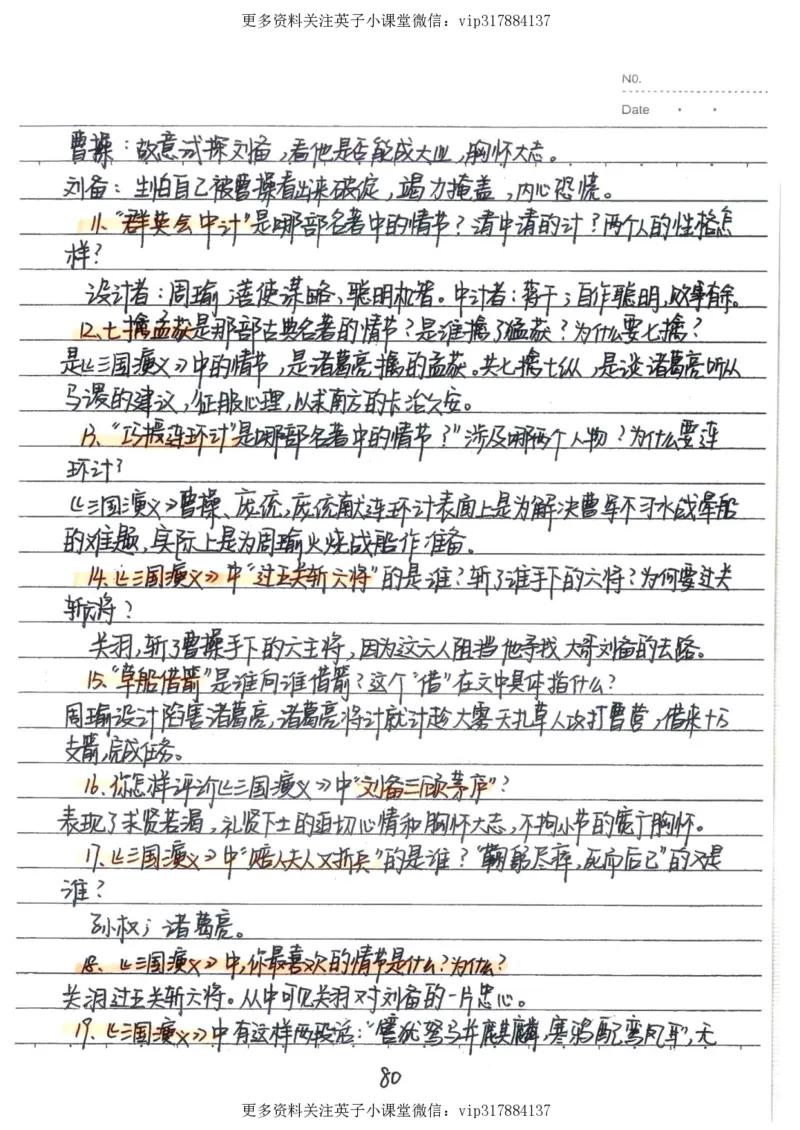 更多资料关注英子小课堂微信：vip317884137
NO.
Date
曹操：故意试探刘备，看他是否能成大业，胸怀大志。
刘备：生怕自己被曹操看出来破绽，竭力掩盖，内心恐慌。
11、"群英会中计"是哪部名著中的情节？请中请的计？两个人的性格怎
样？
设计者：周瑜；善使谋略、聪明机智。中计者：蒋干；自作聪明，败事有余。
12、七擒孟获是那部古典名著的情节？是谁擒了猛获？为什么要七擒？
是《三国演义》中的情节，是诸葛亮擒的孟获。共七擒七纵，是谈诸葛亮听从
马谡的建议，征服心理，以求南方的长治久安。
13、"巧授连环计"是哪部名著中的情节？"涉及哪两个人物？为什么要连
环计？
《三国演义》曹操、庞统，庞统献连环计表面上是为解决曹军不习水战晕船
的难题，实际上是为周瑜火烧战船作准备。
14、《三国演义》中"过五关斩六将"的是谁？斩了谁手下的六将？为何要过关
斩六将？
关羽，斩了曹操手下的六主将，因为这六人阻挡他寻找大哥刘备的去路。
15、"草船借箭"是谁向谁借箭？这个"借"在文中具体指什么？
周瑜设计陷害诸葛亮，诸葛亮将计就计趁大雾天扎草人攻打曹营，借来十万
支箭，完成任务。
16、你怎样评价《三国演义》中"刘备三顾茅庐"？
表现了求贤若渴，礼贤下士的迫切心情和胸怀大志，不拘小节的宽广胸怀。
17、《三国演义》中"赔了夫人又折兵"的是谁？"鞠躬尽瘁，死而后已"的又是
谁？
孙权；诸葛亮。
18、《三国演义》中，你最喜欢的情节是什么？为什么？
关羽过五关斩六将。从中可见关羽对刘备的一片忠心。
19、《三国演义》中有这样两段话："譬犹驽马并麒麟，寒鸦配鸾凤耳"，无
80
更多资料关注英子小课堂微信：vip317884137